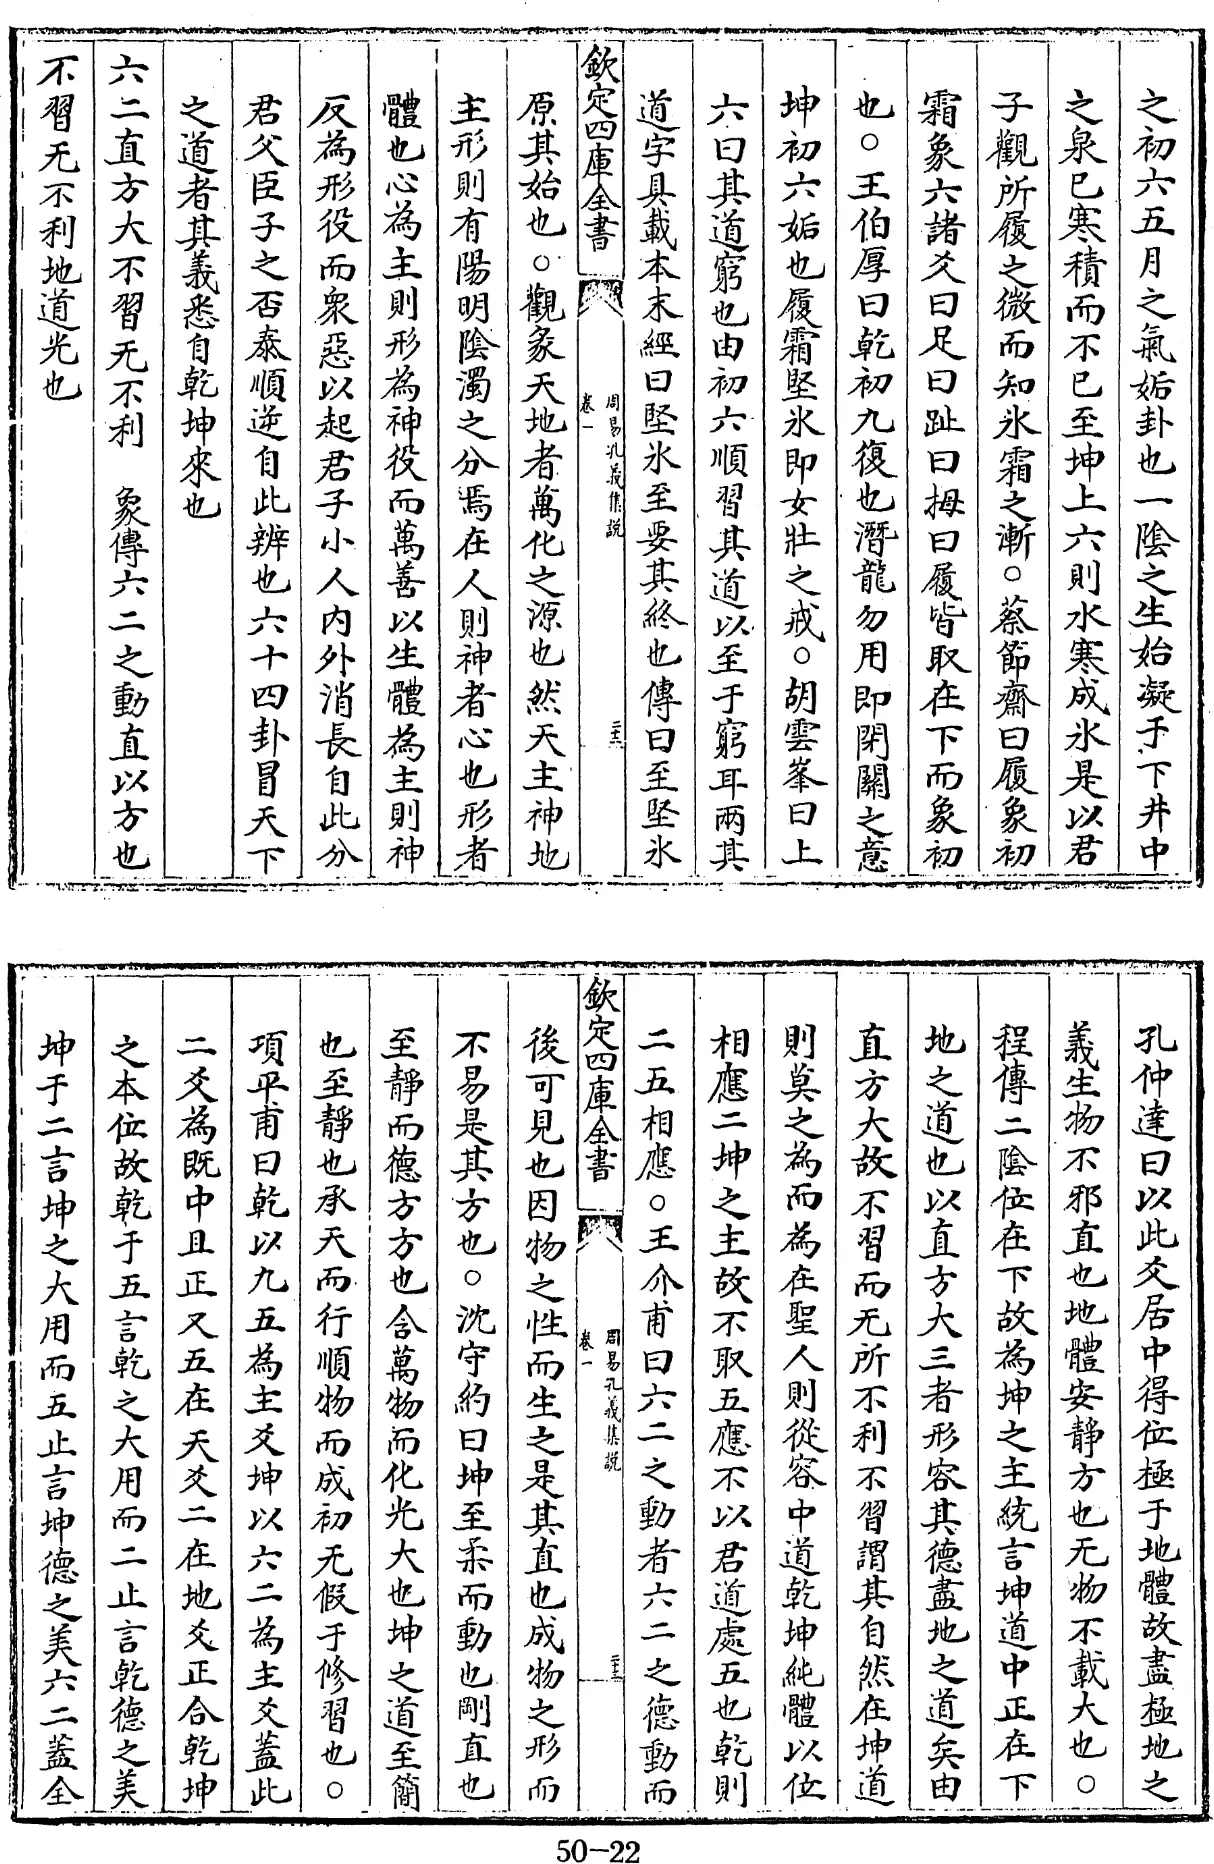 之初六五月之氣姤卦也一陰之生始凝于下井中
之泉已寒積而不已至坤上六則水寒成氷是以君
子觀所履之微而知氷霜之漸○蔡節齋曰履象初
霜象六諸爻曰足曰趾曰拇曰履皆取在下而象初
也○王伯厚曰乾初九復也潛龍勿用即閉關之意
坤初六姤也履霜堅氷即女壯之戒○胡雲峯曰上
六曰其道窮也由初六順習其道以至于窮耳兩其
道字具載本末經曰堅氷至要其終也傳曰至堅氷
欽定四庫全書
周易孔義集說
卷一
二十三
原其始也○觀彖天地者萬化之源也然天主神地
主形則有陽明陰濁之分焉在人則神者心也形者
體也心為主則形為神役而萬善以生體為主則神
反為形役而衆惡以起君子小人内外消長自此分
君父臣子之否泰順逆自此辨也六十四卦冒天下
之道者其義悉自乾坤來也
六二直方大不習无不利 象傳六二之動直以方也
不習无不利地道光也
孔仲達曰以此爻居中得位極于地體故盡極地之
義生物不邪直也地體安靜方也无物不載大也○
程傳二陰位在下故為坤之主統言坤道中正在下
地之道也以直方大三者形容其德盡地之道矣由
直方大故不習而无所不利不習謂其自然在坤道
則莫之為而為在聖人則從容中道乾坤純體以位
相應二坤之主故不取五應不以君道處五也乾則
二五相應○王介甫曰六二之動者六二之德動而
欽定四庫全書
周易孔義集說
卷一
二十三
後可見也因物之性而生之是其直也成物之形而
不易是其方也○沈守約曰坤至柔而動也剛直也
至靜而德方方也含萬物而化光大也坤之道至簡
也至靜也承天而行順物而成初无假于修習也○
項平甫曰乾以九五為主爻坤以六二為主爻蓋此
二爻為既中且正又五在天爻二在地爻正合乾坤
之本位故乾于五言乾之大用而二止言乾德之美
坤于二言坤之大用而五止言坤德之美六二蓋全
50-22